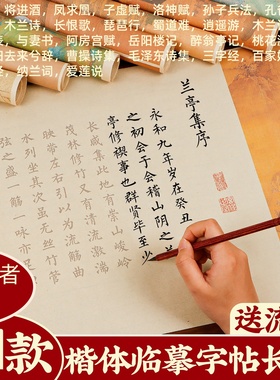 将进酒，凤求凰，子虚赋，洛神赋，孙子兵法，孔
木兰诗，长恨歌，琵琶行，蜀道难，逍遥游，木兰
，与妻书，阿房宫赋，岳阳楼记，醉翁亭记，桃花
归去来兮辞，曹操诗集，毛泽东诗集，三字经，百家
经，纳兰词，爱莲说
兰亭集序
永和九年岁在癸丑
之初会于会稽山阴之
亭修禊事也群贤毕至少
长咸集此地有崇山峻岭
茂林修竹又有清流激
映带左右引以为流觞曲
水列坐其次虽无丝竹管
弦之盛一觞一咏亦
者
送流
款
楷体临摹字帖长